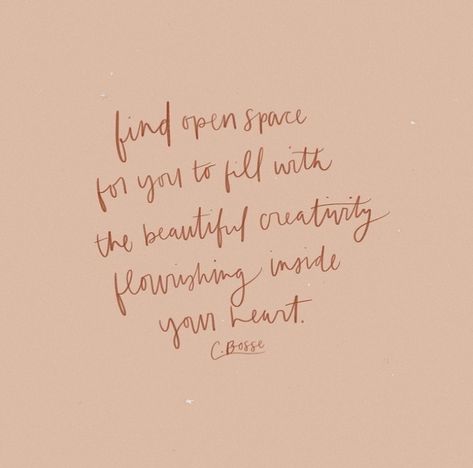 find open space
for you to fill with
the beautiful creativity
flourishing inside
your heart.
C. Bosse